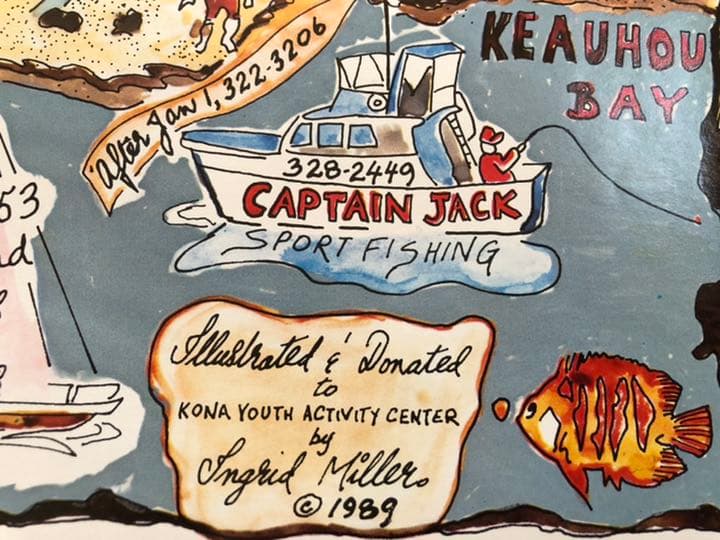 After Jan 1, 322-3206
KEAUHOU
BAY
328-2449
CAPTAIN JACK
SPORT FISHING
53
Illustrated & Donated
to
KONA YOUTH ACTIVITY CENTER
by
Ingrid Miller
© 1989